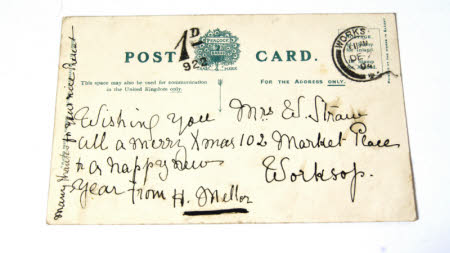 1D
922
POST CARD
This space may also be used for communication
in the United Kingdom only.
FOR THE ADDRESS ONLY.
WORKS
11 AM
DE
04
Wishing you
all a merry Xmas
& a happy new
Year from H. Mellor
Mrs W. Straw
102 Market Place
Worksop.
Many thanks for